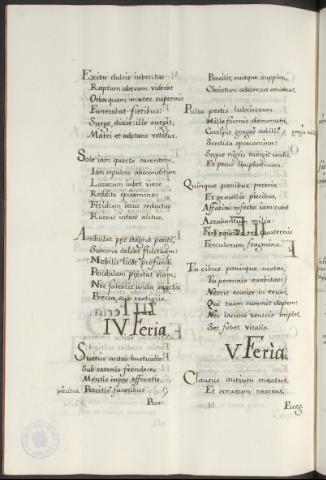 Exitu dulcis iuventus
Raptum abevum viderat
Orbaque mater supremis
Funerabat fletibus:
Surge, dixit: ille surgit,
Matri et adstans redditur.
Sole iam quarto carentem,
Iam sepulcro absconditum
Lazarum iubet vigere
Reddito spiramine:
Fetidum iecur reductus
Rursus intrat halitus.
Ambulat per stagna ponti,
Summa calcat fluctuum:
Mobilis liquor profundi
Pendulam praestat viam;
Nec fatiscit unda sanctis
Pressa sub vestigiis.
IV Feria
Suetus antro bustuali
Sub catenis frendere,
Mentis impos efferatis
percitus Percitis furoribus
Pro-
Prosilit, ruitque supplex,
Christum adesse ut senserat.
Pulsa pestis lubricorum
Mille formis daemonum,
Corripit gregis suilli
Sordida spurcamina:
Seque nigris mergit undis
Et pecus lymphaticum.
Quinque panibus peresis
Et gemellis piscibus,
Affatim refecta iam sunt
Accubantum milia:
Fertque qualus ter quaternis
Ferculorum fragmina.
Tu cibus panisque noster,
Tu perennis suavitas;
Nescit esurire in evum,
Qui tuam sumit dapem:
Nec lacunam ventris implet,
Sed fovet vitalia.
V Feria.
Clausus aurium meatus
Et sonorum nescius,
Purg.